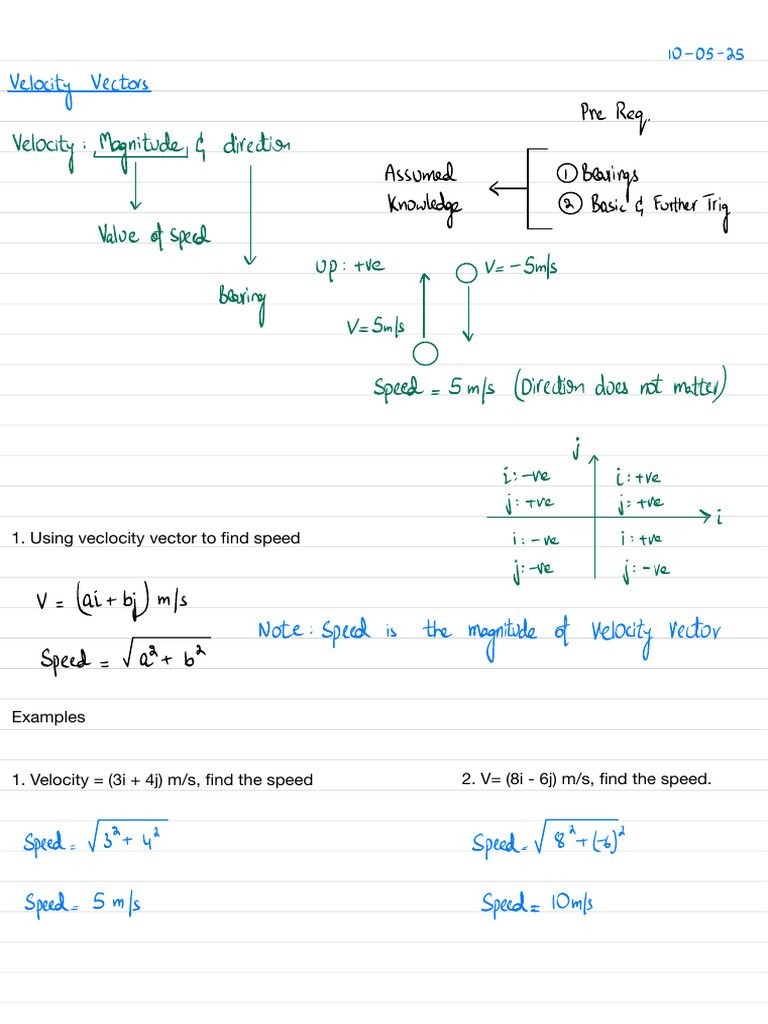 10-05-25
Velocity Vectors
Pre Req.
Velocity: Magnitude, & direction
Assumed
Knowledge
① Bearings
② Basic & Further Trig
Value of speed
Bearing
Up: +ve
V= -5m/s
V=5m/s
Speed = 5 m/s (Direction does not matter)
j
i: -ve
j: +ve
i: +ve
j: +ve
i
i: -ve
j: -ve
i: +ve
j: -ve
1. Using veclocity vector to find speed
V = (ai + bj) m/s
Note: Speed is the magnitude of velocity vector
Speed = √a² + b²
Examples
1. Velocity = (3i + 4j) m/s, find the speed
2. V= (8i - 6j) m/s, find the speed.
Speed = √3² + 4²
Speed = √8² + (-6)²
Speed = 5 m/s
Speed = 10m/s